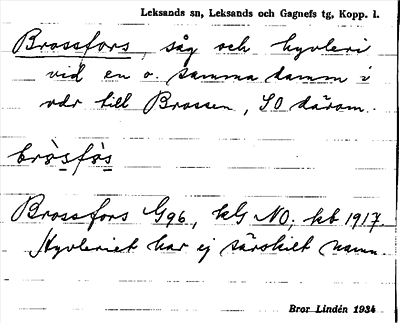 Leksands sn, Leksands och Gagnefs tg, Kopp. l.
Brossfors, såg och hyvleri
vid en o. samma damm i
vdr till Brossen, SO därom.
bròsfòs
Brossfors G96, kG NO, kb 1917.
Hyvleriet har ej särskilt namn.
Bror Lindén 1934